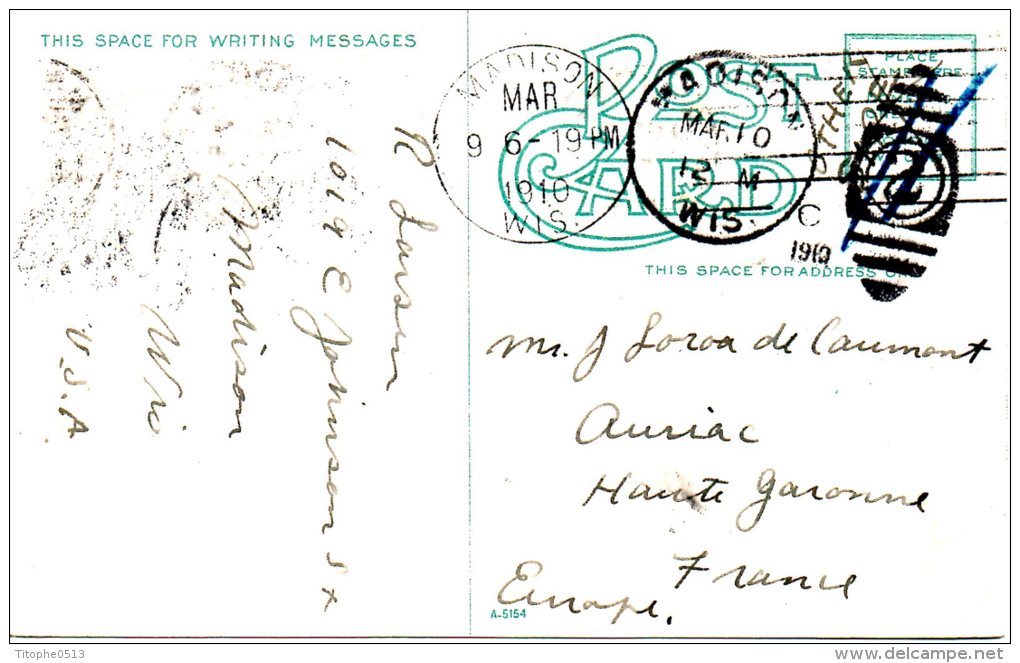 THIS SPACE FOR WRITING MESSAGES
R Larsen
1019 E Johnson St
Madison
Wis
U.S.A
POST CARD
MADISON
MAR
9 6-19 PM
1910
WIS.
MADISON
MAR 10
M
WIS.
C
1910
PLACE
STAMP HERE
THIS SPACE FOR ADDRESS ONLY
Mr. J Loroa de Caumont
Auriac
Haute Garonne
France
Europe.
A-5154
Titophe0513
delcampe.net